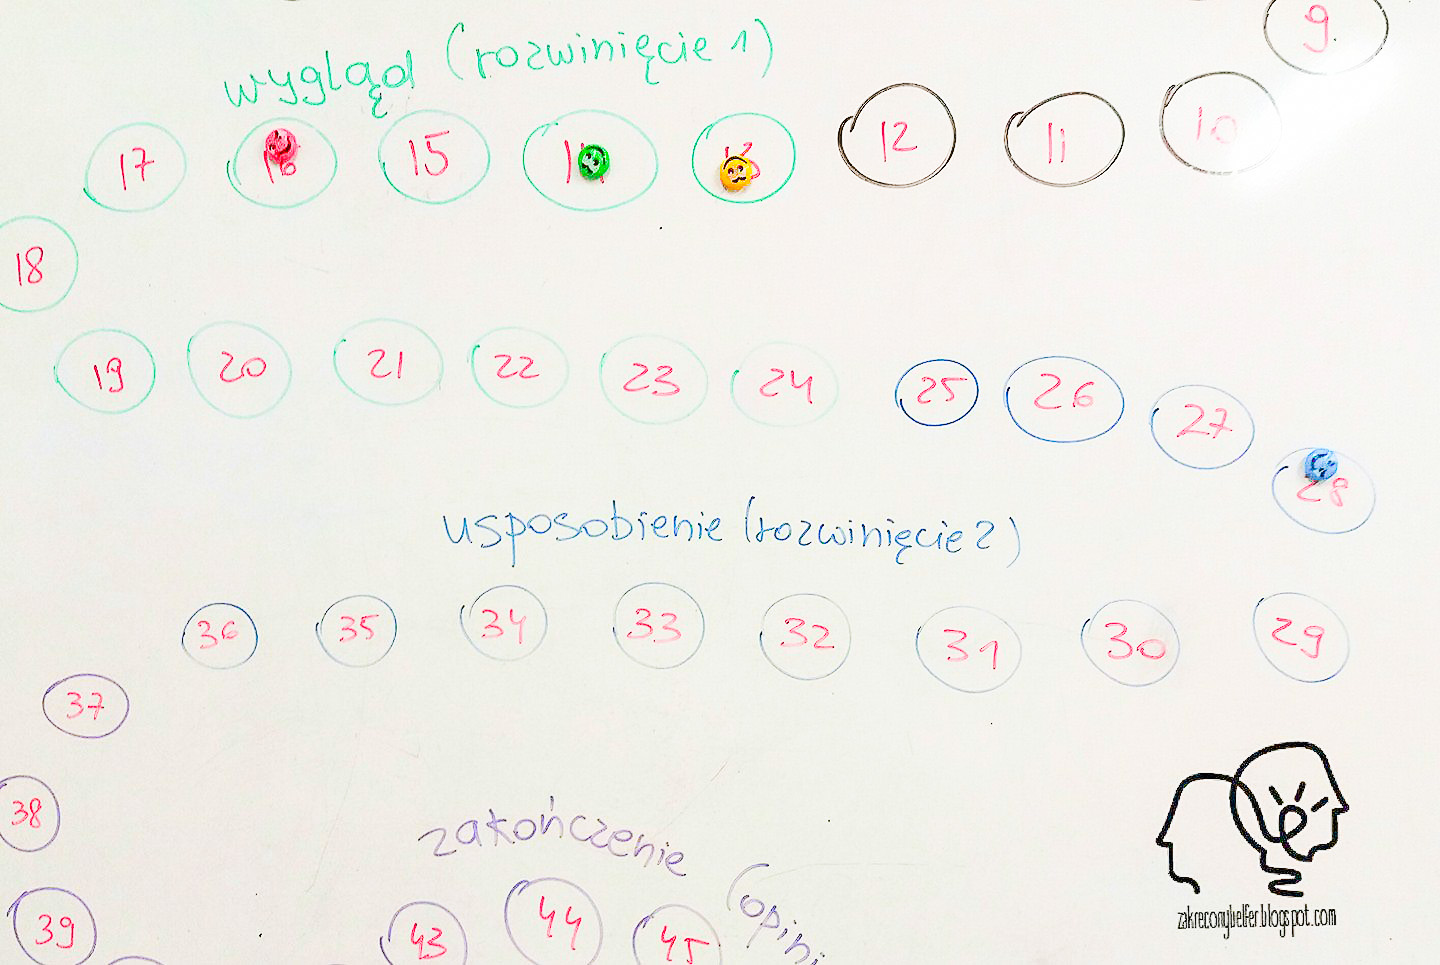 9
wygląd (rozwinięcie 1)
17 16 15 14 13 12 11 10
18
19 20 21 22 23 24 25 26 27
28
usposobienie (rozwinięcie 2)
36 35 34 33 32 31 30 29
37
38
zakończenie
(opini
39 43 44 45
zakreconybelfer.blogspot.com